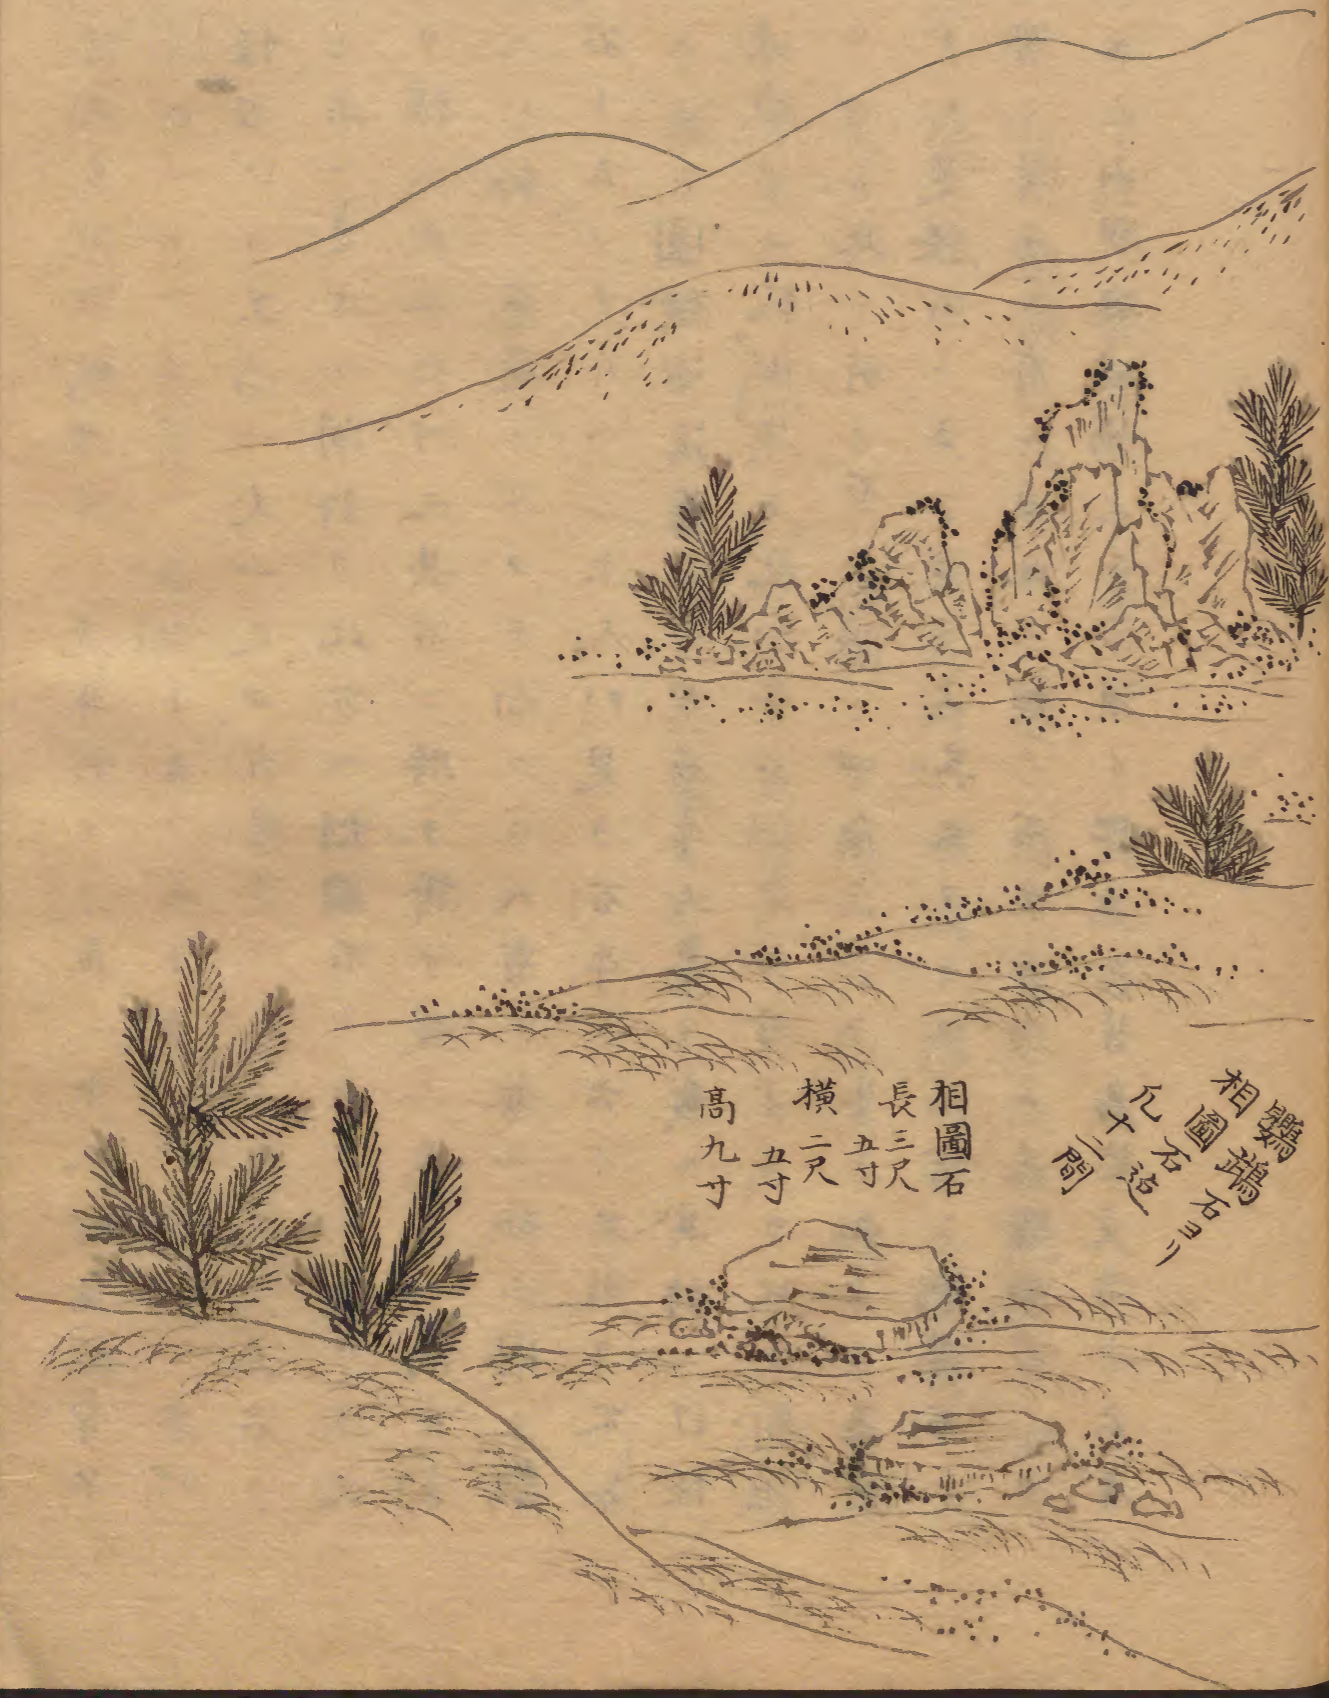 鸚鵡石ヨリ
相圖石迠
凡十二間
相圖石
長三尺
五寸
横二尺
五寸
高九寸